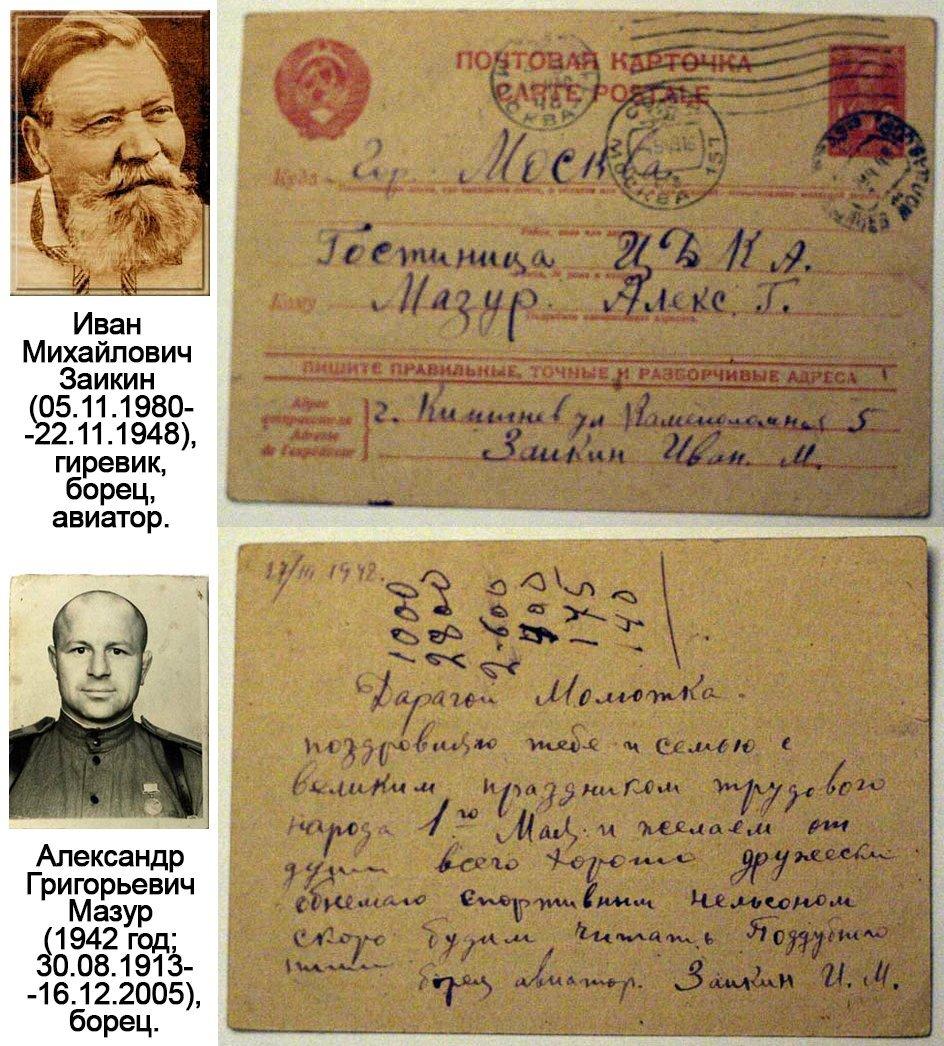 Иван
Михайлович
Заикин
(05.11.1980-
-22.11.1948),
гиревик,
борец,
авиатор.
Александр
Григорьевич
Мазур
(1942 год;
30.08.1913-
-16.12.2005),
борец.
ПОЧТОВАЯ КАРТОЧКА
CARTE POSTALE
МОСКВА
МОСКВА 151
Куда Гор. Москва.
Гостиница ЦЪКА.
Кому Мазур. Алекс. Г.
ПИШИТЕ ПРАВИЛЬНЫЕ, ТОЧНЫЕ И РАЗБОРЧИВЫЕ АДРЕСА
Адрес
отправителя
Adresse
de l'expéditeur
г. Кишинев ул Каменоломная 5
Заикин Иван. М.
27/III 1942.
1000
2800
2-600
900
175
140
Дарагой
поздровляю тебе и семью с
великим праздником трудового
народа 1го Мая. и желаем от
души всего хорошо дружески
обнемаю спортивным нельсоном
скоро будим читать Поддубного
борец авиатор. Заикин И. М.